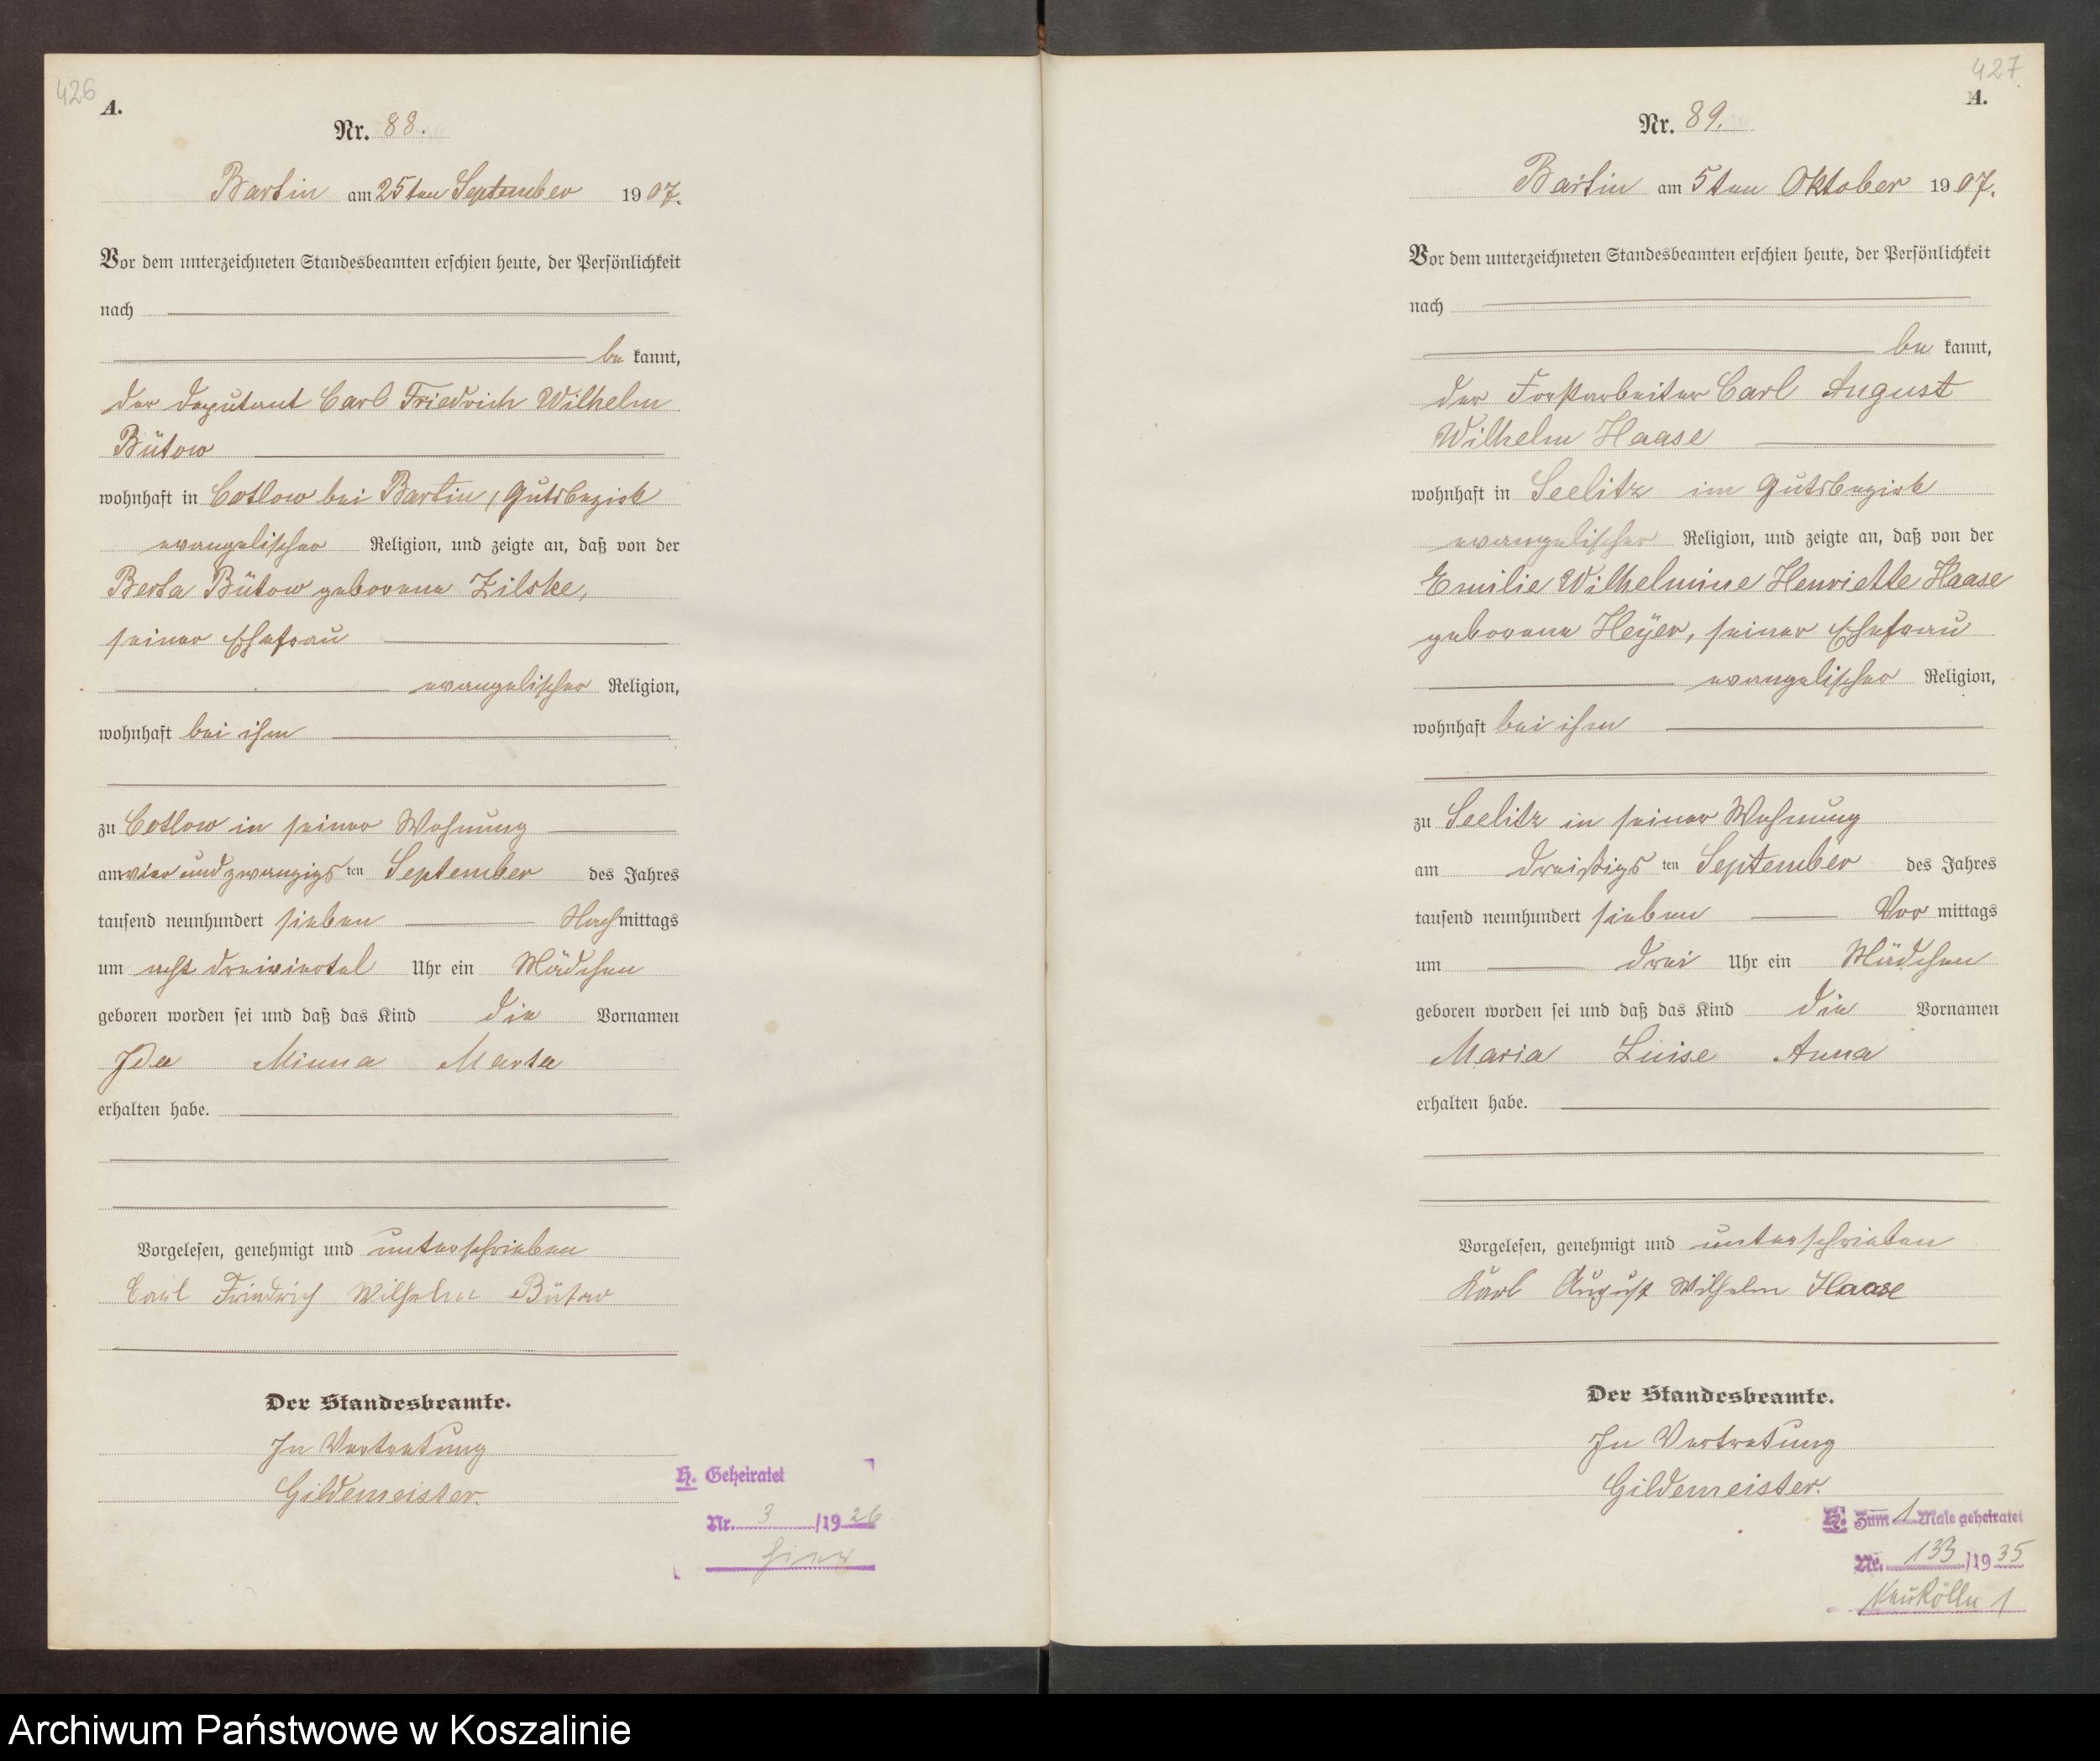 426
A.
Nr. 88.
Bartin am 25ten September 1907.
Vor dem unterzeichneten Standesbeamten erschien heute, der Persönlichkeit
nach
be kannt,
der Deputant Carl Friedrich Wilhelm
Bütow
wohnhaft in Cotlow bei Bartin, Gutsbezirk
evangelischer Religion, und zeigte an, daß von der
Berta Bütow geborene Zilske,
seiner Ehefrau
evangelischer Religion,
wohnhaft bei ihm
zu Cotlow in seiner Wohnung
am vier und zwanzigs ten September des Jahres
tausend neunhundert sieben Nachmittags
um acht dreiviertel Uhr ein Mädchen
geboren worden sei und daß das Kind die Vornamen
Ida Minna Marta
erhalten habe.
Vorgelesen, genehmigt und unterschrieben
Carl Friedrich Wilhelm Bütow
Der Standesbeamte.
In Vertretung
Gildemeister.
H. Geheiratet
Nr. 3 /1926
hier
427
A.
Nr. 89.
Bartin am 5ten Oktober 1907.
Vor dem unterzeichneten Standesbeamten erschien heute, der Persönlichkeit
nach
be kannt,
der Forstarbeiter Carl August
Wilhelm Haase
wohnhaft in Seelitz im Gutsbezirk
evangelischer Religion, und zeigte an, daß von der
Emilie Wilhelmine Henriette Haase
geborene Heyer, seiner Ehefrau
evangelischer Religion,
wohnhaft bei ihm
zu Seelitz in seiner Wohnung
am dreißigs ten September des Jahres
tausend neunhundert sieben Vor mittags
um drei Uhr ein Mädchen
geboren worden sei und daß das Kind die Vornamen
Maria Luise Anna
erhalten habe.
Vorgelesen, genehmigt und unterschrieben
Karl August Wilhelm Haase
Der Standesbeamte.
In Vertretung
Gildemeister.
H. Zum 1 Male geheiratet
Nr. 133 /1935
Neukölln 1
Archiwum Państwowe w Koszalinie